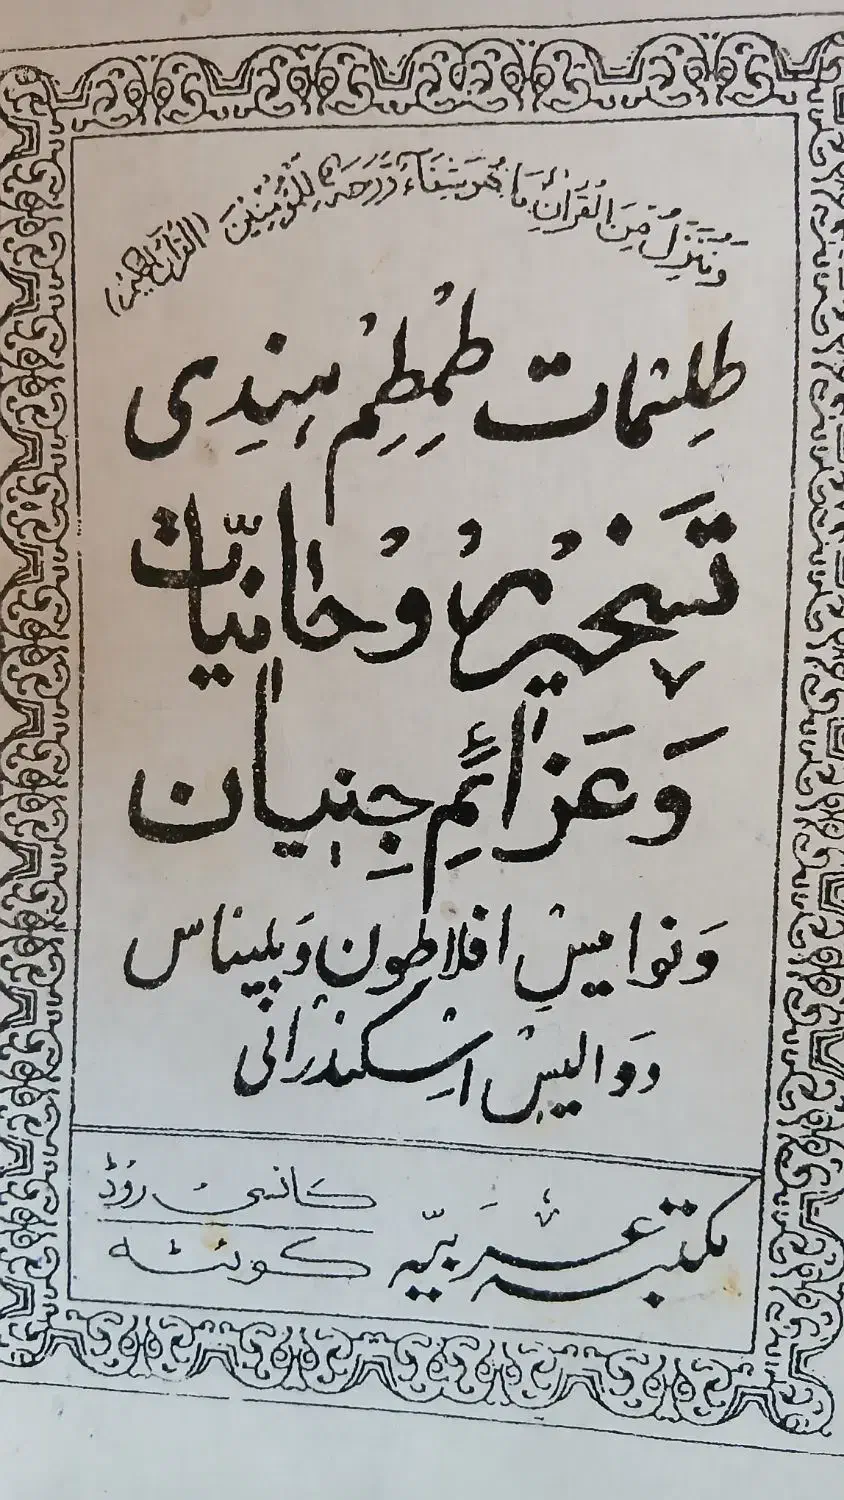 وَنُنَزِّلُ مِنَ الْقُرْاٰنِ مَا هُوَ شِفَاءٌ وَّرَحْمَةٌ لِّلْمُؤْمِنِيْنَ (القرآن الحکیم)
طِلِسْمات طُمْطُمْ هِنْدِی
تَسْخِیْرِ رُوْحَانِیَّات
وَعَزَائِمِ جِنِّیان
وَنوامیسِ افلاطون وَبلیناس
وَوَالیس اسْکندرانی
مکتبہ عَربیّہ
کانسی روڈ
کوئٹہ